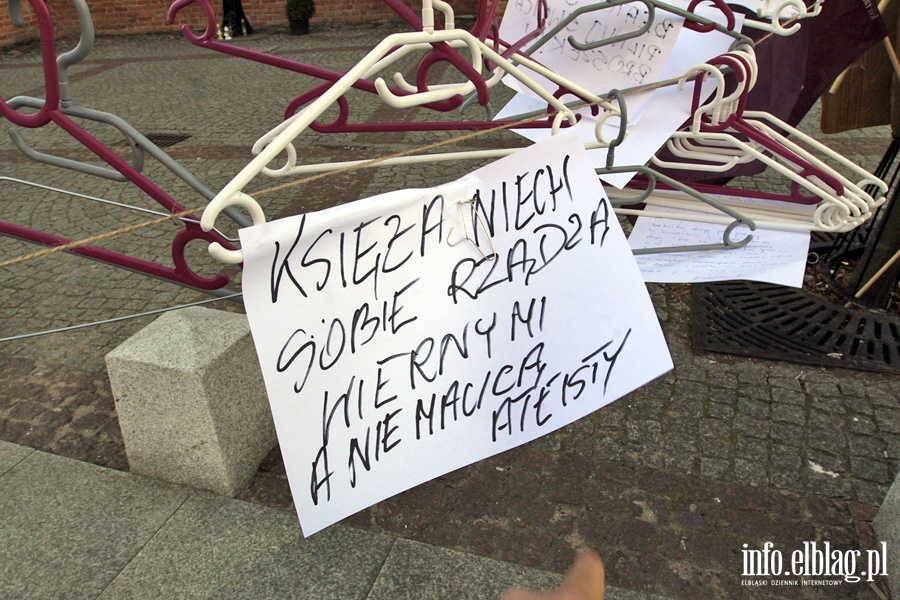 KSIĘŻA NIECH
SOBIE RZĄDZĄ
WIERNYMI
A NIE MACICĄ
ATEISTY
info.elblag.pl
ELBLĄSKI DZIENNIK INTERNETOWY